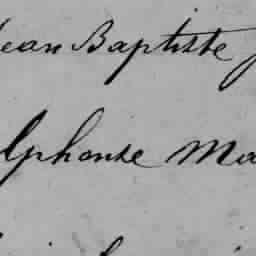 Jean Baptiste J
Alphonse Ma